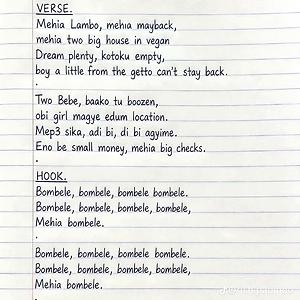 VERSE.
Mehia Lambo, mehia mayback,
mehia two big house in vegan
Dream plenty, kotoku empty,
boy a little from the getto can't stay back.
.
Two Bebe, baako tu boozen,
obi girl magye edum location.
Mep3 sika, adi bi, di bi agyime.
Eno be small money, mehia big checks.
.
HOOK.
Bombele, bombele, bombele bombele.
Bombele, bombele, bombele, bombele,
Mehia bombele.
.
Bombele, bombele, bombele bombele.
Bombele, bombele, bombele, bombele,
Mehia bombele.